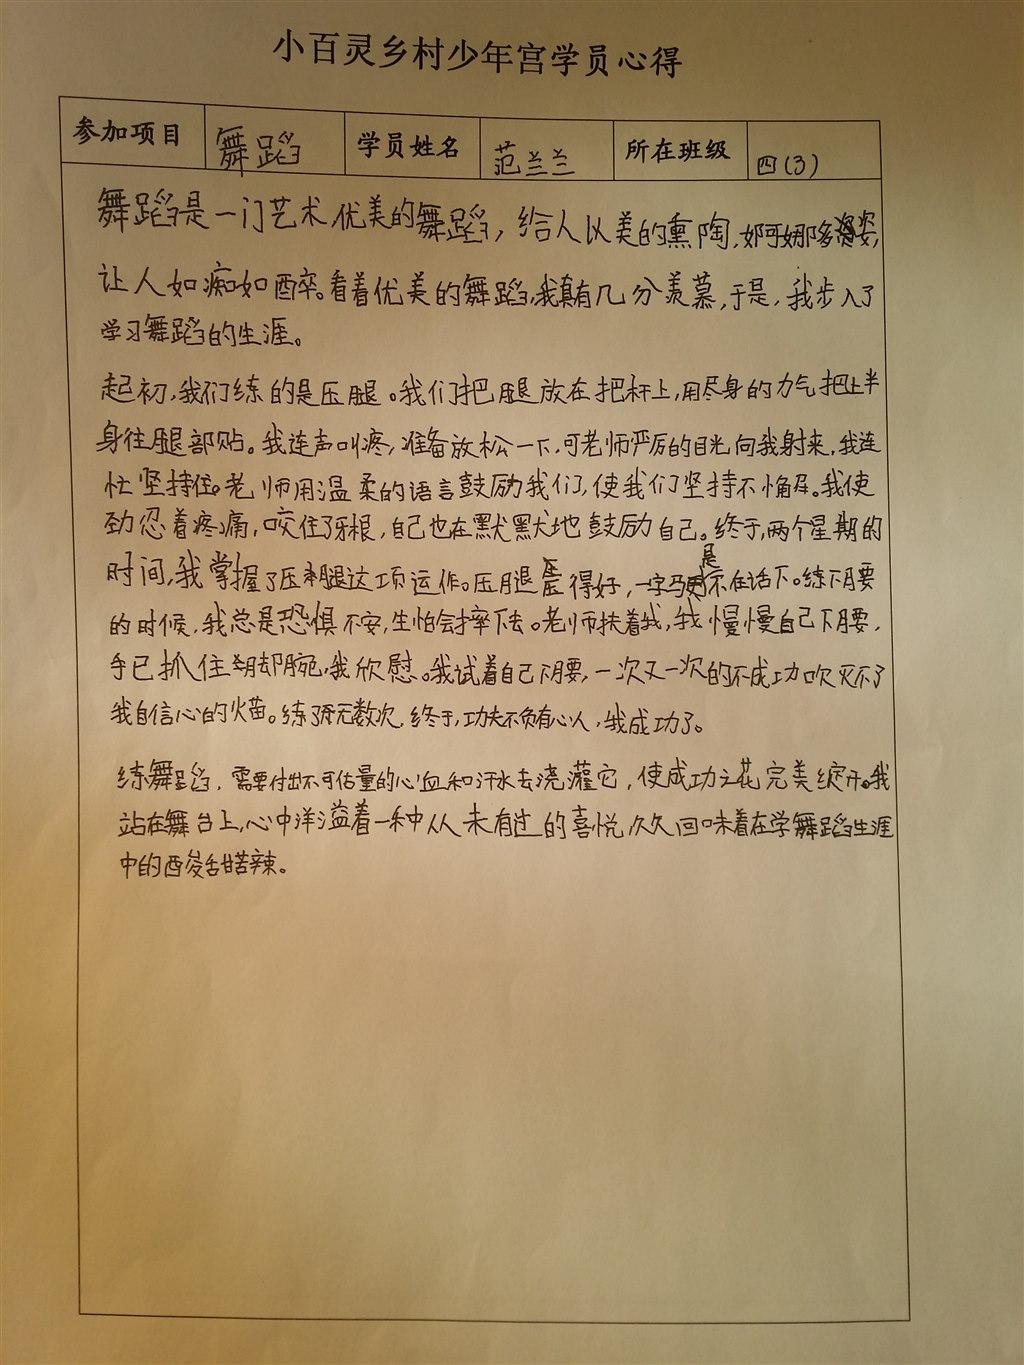 小百灵乡村少年宫学员心得
参加项目 舞蹈 学员姓名 范兰兰 所在班级 四(3)
舞蹈是一门艺术,优美的舞蹈,给人以美的熏陶,婀娜多姿,
让人如痴如醉。看着优美的舞蹈,我真有几分羡慕,于是,我步入了
学习舞蹈的生涯。
起初,我们练的是压腿。我们把腿放在把杆上,用尽身的力气把上半
身往腿部贴。我连声叫疼,准备放松一下,可老师严厉的目光向我射来,我连
忙坚持住。老师用温柔的语言鼓励我们,使我们坚持不懈。我使
劲忍着疼痛,咬住了牙根,自己也在默默地鼓励自己。终于,两个星期的
时间,我掌握了压腿这项运作。压腿压得好,一字马更是不在话下。练下腰
的时候,我总是恐惧不安,生怕会摔下去。老师扶着我,我慢慢自己下腰,
手已抓住脚腕,我欣慰。我试着自己下腰,一次又一次的不成功吹灭不了
我自信心的火苗。练了无数次,终于,功夫不负有心人,我成功了。
练舞蹈,需要付出不可估量的心血和汗水去浇灌它,使成功之花完美绽开。我
站在舞台上,心中洋溢着一种从未有过的喜悦,久久回味着在学舞蹈生涯
中的酸甜苦辣。